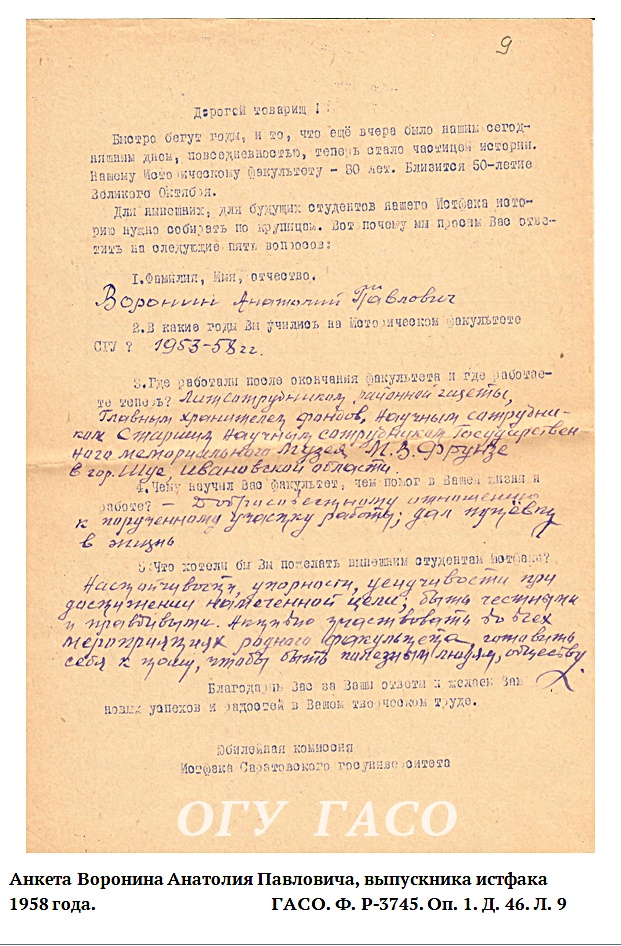 9
Дорогой товарищ !
Быстро бегут годы, и то, что ещё вчера было нашим сегод-
няшним днем, повседневностью, теперь стало частицей истории.
Нашему Историческому факультету - 30 лет. Близится 50-летие
Великого Октября.
Для нынешних, для будущих студентов нашего Истфака исто-
рию нужно собирать по крупицам. Вот почему мы просим Вас отве-
тить на следующие пять вопросов:
1.Фамилия, Имя, отчество.
Воронин Анатолий Павлович
2.В какие годы Вы учились на Историческом факультете
СГУ ? 1953-58 гг.
3.Где работали после окончания факультета и где работае-
те теперь? Литсотрудником районной газеты,
Главным хранителем фондов, научным сотрудни-
ком Старшим научным сотрудником Государствен
ного мемориального музея М. В. Фрунзе
в гор. Шуе, Ивановской области.
4.Чему научил Вас факультет, чем помог в Вашей жизни и
работе? – Добросовестному отношению
к порученному участку работы; дал путёвку
в жизнь
5.Что хотели бы Вы пожелать нынешним студентам истфака?
Настойчивости, упорности, усидчивости при
достижении намеченной цели; быть честными
и правдивыми. Активно участвовать во всех
мероприятиях родного факультета, готовить
себя к тому, чтобы быть полезным людям, обществу
Благодарим Вас за Ваши ответы и желаем Вам
новых успехов и радостей в Вашем творческом труде.
Юбилейная комиссия
Истфака Саратовского госуниверситета
ОГУ ГАСО
Анкета Воронина Анатолия Павловича, выпускника истфака
1958 года. ГАСО. Ф. Р-3745. Оп. 1. Д. 46. Л. 9